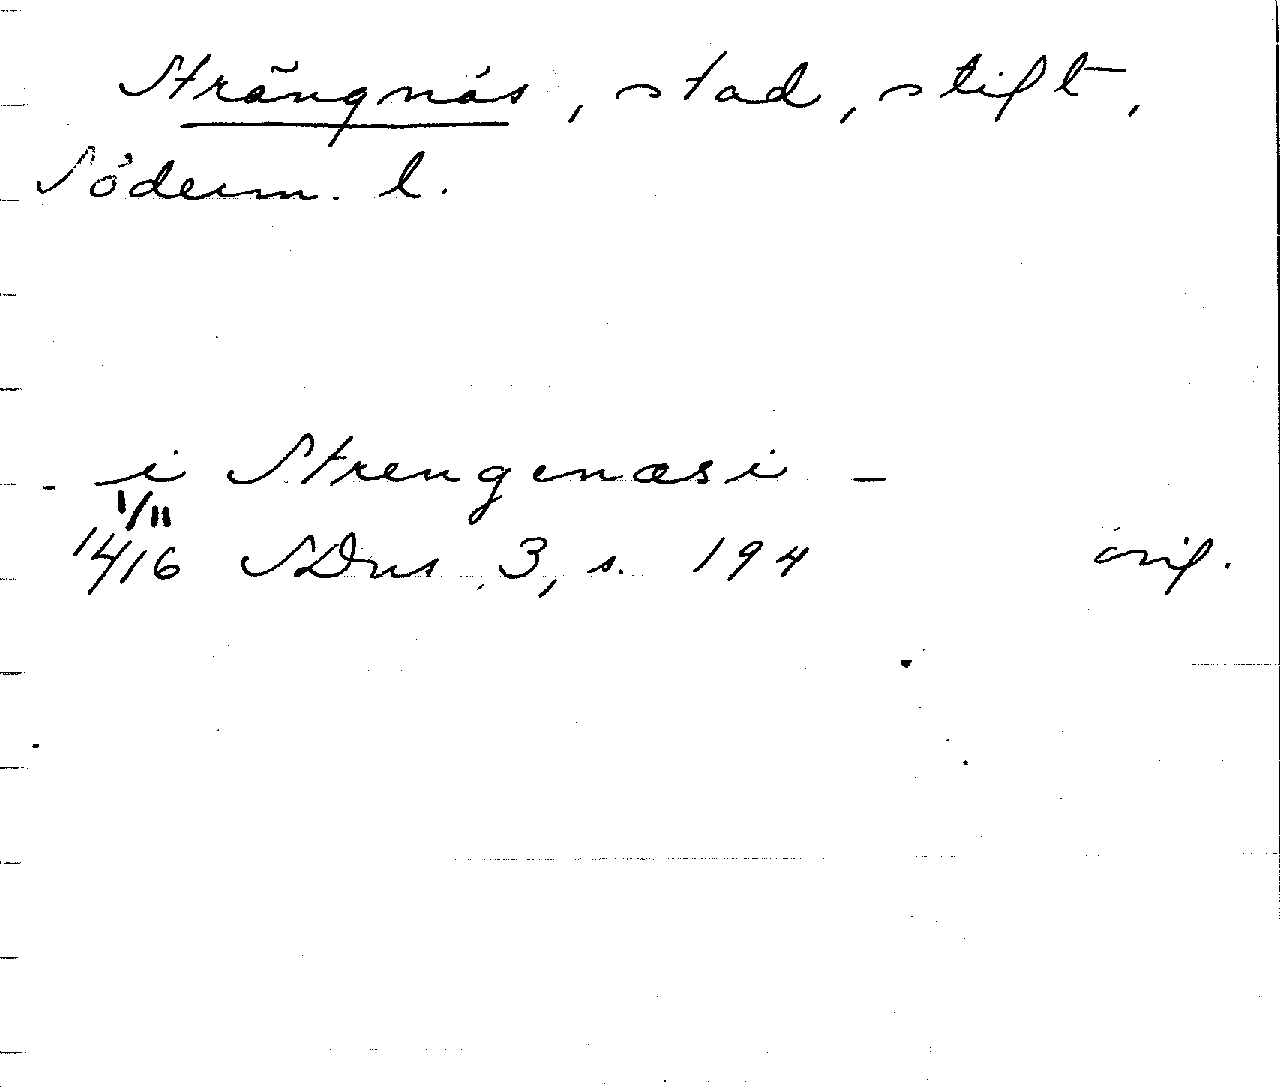 Strängnäs, stad, stift,
Söderm. l.
- i Strengenæsi -
1/11
1416 SDns 3, s. 194 orig.